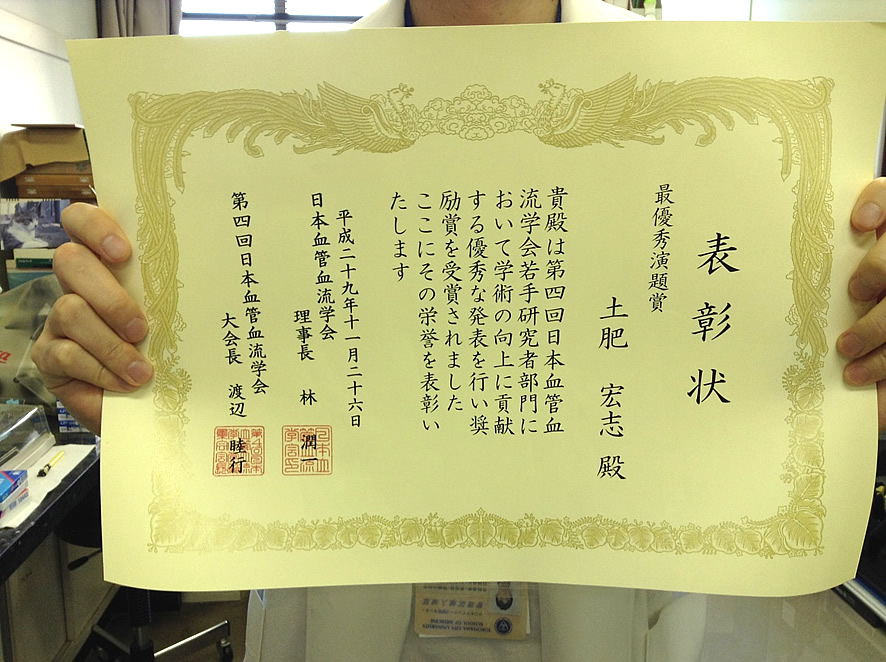 表彰状
最優秀演題賞
土肥 宏志 殿
貴殿は第四回日本血管血
流学会若手研究者部門に
おいて学術の向上に貢献
する優秀な発表を行い奨
励賞を受賞されました
ここにその栄誉を表彰い
たします
平成二十九年十一月二十六日
日本血管血流学会
理事長 林 潤一
第四回日本血管血流学会
大会長 渡辺 睦行
YOKOHAMA CITY UNIVERSITY
SCHOOL OF MEDICINE